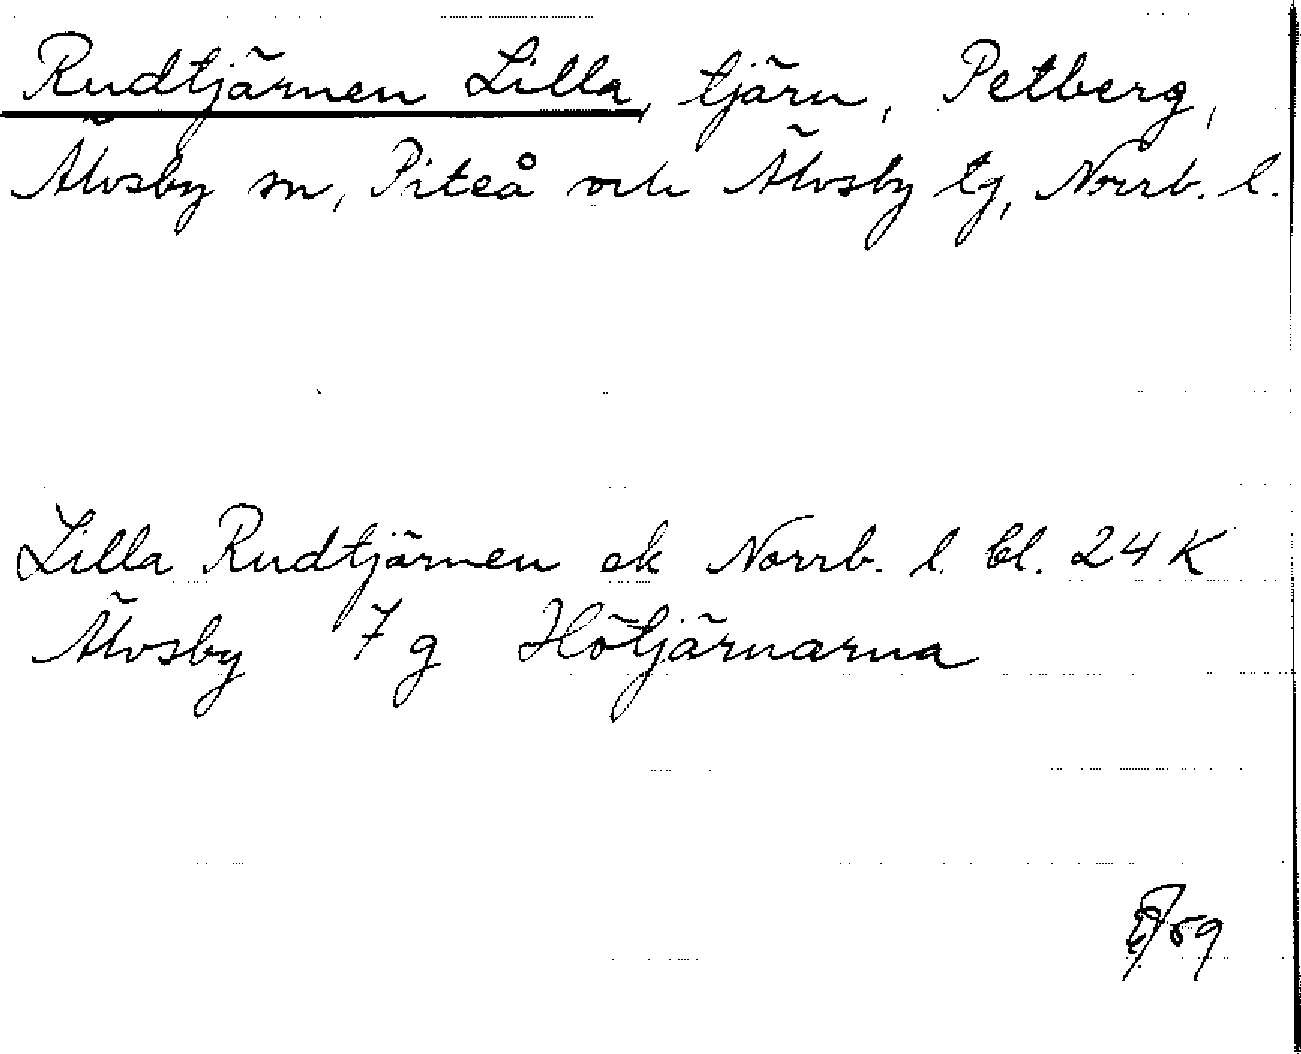 Rudtjärnen Lilla, tjärn, Petberg,
Älvsby sn, Piteå och Älvsby tg, Norrb. l.
Lilla Rudtjärnen ek Norrb. l. bl. 24 K
Älvsby 7 g Hötjärnarna
59